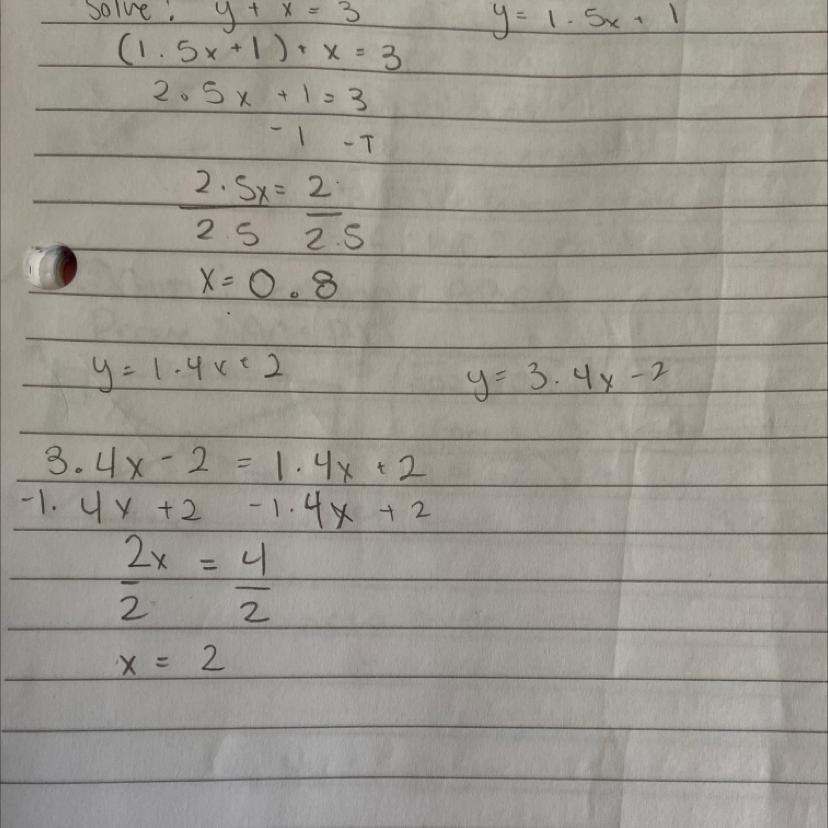 Solve: y + x = 3 y = 1.5x + 1
(1.5x+1) + x = 3
2.5x + 1 = 3
-1 -1
2.5x = 2
2.5 2.5
x = 0.8
y = 1.4x + 2 y = 3.4x - 2
3.4x - 2 = 1.4x + 2
-1.4x + 2 -1.4x + 2
2x = 4
2 2
x = 2